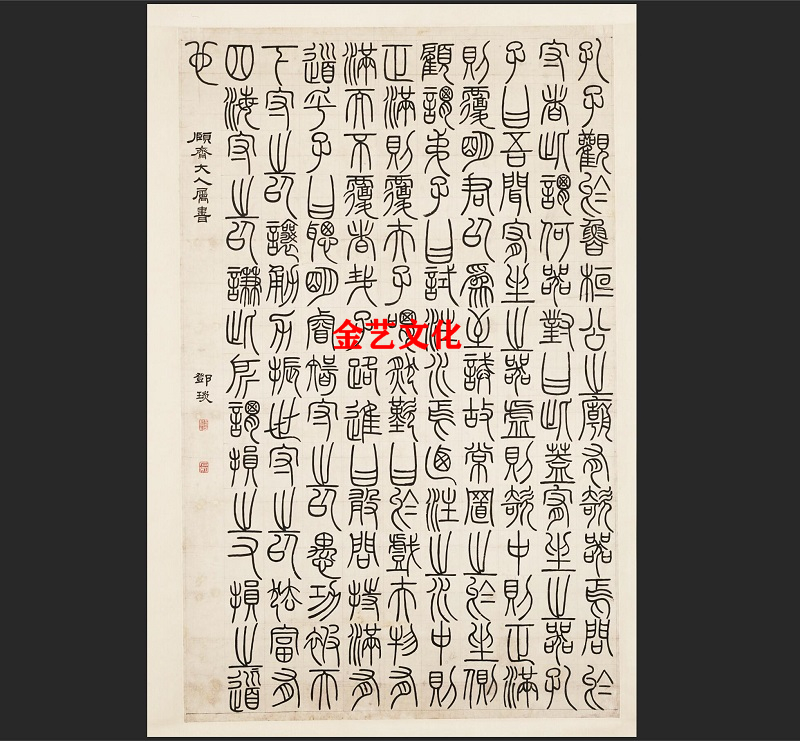 孔子觀於魯桓公之廟有欹器焉問於
守者此謂何器對曰此蓋宥坐之器孔
子曰吾聞宥坐之器虛則欹中則正滿
則覆明君以為至誡故常置之於坐側
顧謂弟子曰試注水焉迺注之水中則
正滿則覆夫子喟然歎曰於戲夫物有
滿而不覆者哉子路進曰敢問持滿有
道乎子曰聰明睿智守之以愚功被天
下守之以讓勇力振世守之以怯富有
四海守之以謙此所謂損之又損之道
也
頤齋大人屬書
鄧琰
金艺文化